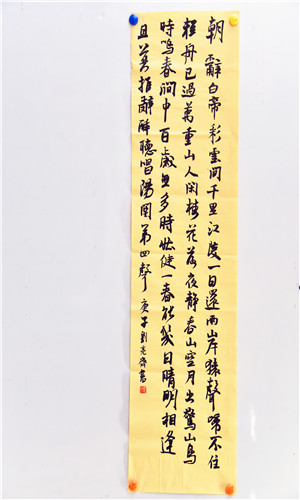 朝辭白帝彩雲間千里江陵一日還兩岸猿聲啼不住
輕舟已過萬重山人閑桂花落夜靜春山空月出驚山鳥
時鳴春澗中百歲無多時壯健一春能幾日晴明相逢
且莫推辭醉聽唱陽關第四聲 庚子劉